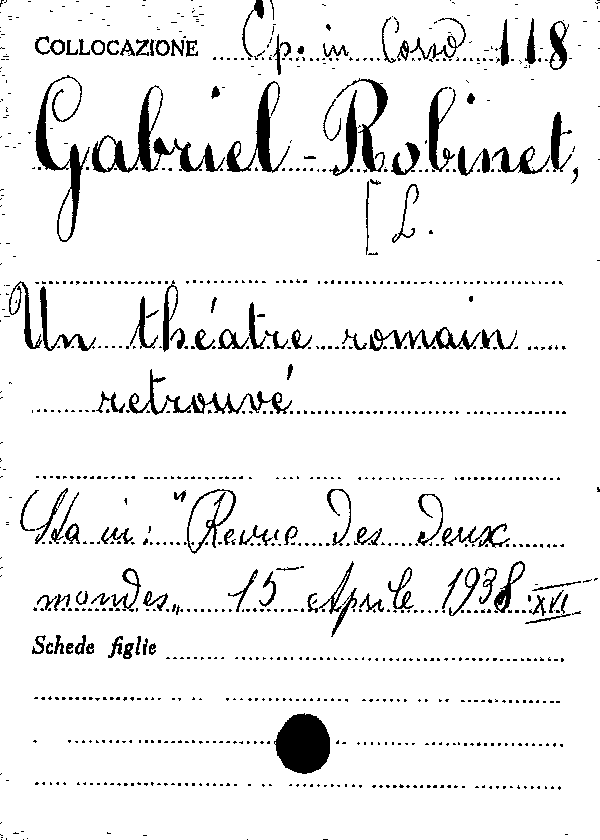 COLLOCAZIONE Op. in Corso 118
Gabriel-Robinet,
[L.
Un théatre romain
retrouvé
Sta in: "Revue des deux
mondes„ 15 Aprile 1938·XVI
Schede figlie